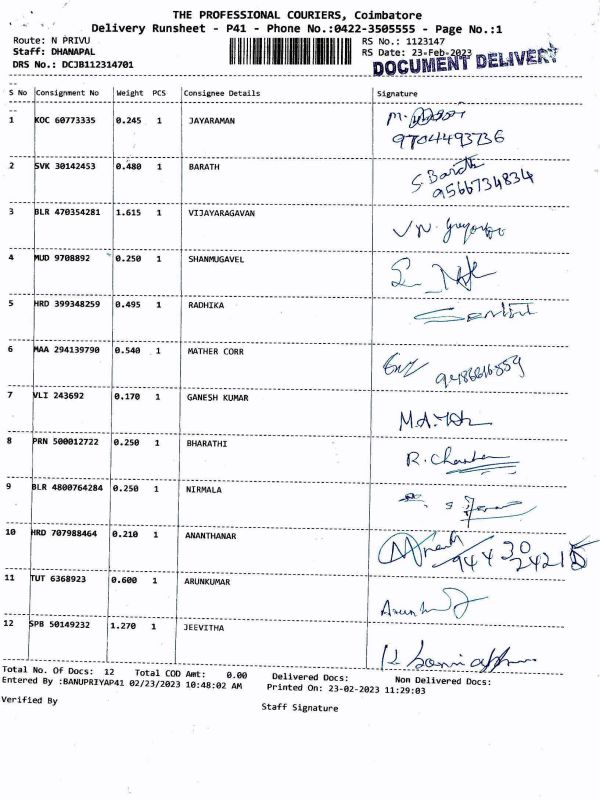 THE PROFESSIONAL COURIERS, Coimbatore
Delivery Runsheet - P41 - Phone No.:0422-3505555 - Page No.:1
Route: N PRIVU RS No.: 1123147
Staff: DHANAPAL RS Date: 23-Feb-2023
DRS No.: DCJB112314701 DOCUMENT DELIVERY
S No Consignment No Weight PCS Consignee Details Signature
1 KOC 60773335 0.245 1 JAYARAMAN M.
9704493736
2 SVK 30142453 0.480 1 BARATH S. Barath
9566734834
3 BLR 470354281 1.615 1 VIJAYARAGAVAN
4 MUD 9708892 0.250 1 SHANMUGAVEL
5 HRD 399348259 0.495 1 RADHIKA
6 MAA 294139790 0.540 1 MATHER CORR
7 VLI 243692 0.170 1 GANESH KUMAR
8 PRN 500012722 0.250 1 BHARATHI
9 BLR 4800764284 0.250 1 NIRMALA
10 HRD 707988464 0.210 1 ANANTHANAR
11 TUT 6368923 0.600 1 ARUNKUMAR
12 SPB 50149232 1.270 1 JEEVITHA
Total No. Of Docs: 12 Total COD Amt: 0.00 Delivered Docs: Non Delivered Docs:
Entered By :BANUPRIYAP41 02/23/2023 10:48:02 AM Printed On: 23-02-2023 11:29:03
Verified By Staff Signature